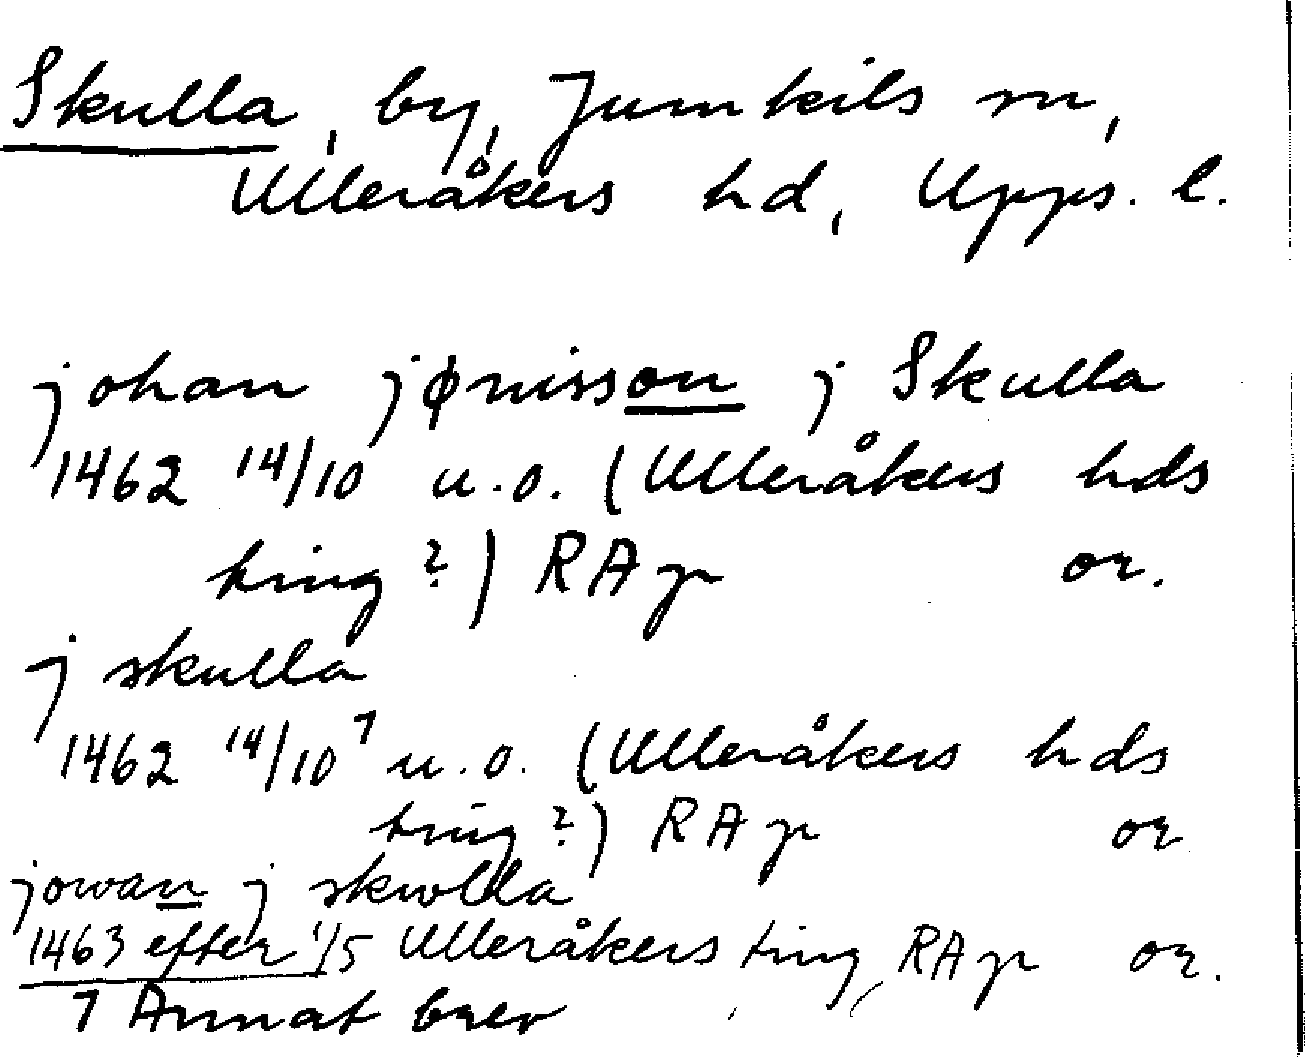 Skulla, by, Jumkils sn,
Ulleråkers hd, Upps. l.
johan jønisson j Skulla
1462 14/10 u.o. (Ulleråkers hds
ting?) RAp or.
j skulla
1462 14/10 1 u.o. (Ulleråkers hds
ting?) RAp or
jowan j skwlla
1463 efter 1/5 Ulleråkers ting, RAp or.
1 Annat brev